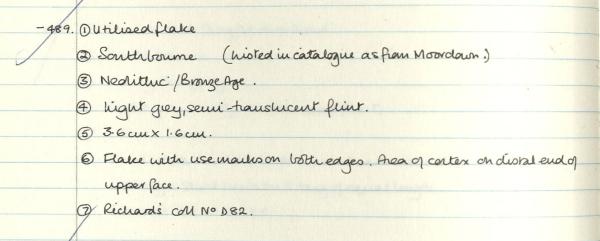 -489. ① Utilised flake
② Southbourne (Listed in catalogue as from Moordown.)
③ Neolithic/Bronze Age.
④ Light grey, semi-translucent flint.
⑤ 3.6cm x 1.6cm.
⑥ Flake with use marks on both edges. Area of cortex on distal end of
upper face.
⑦ Richards coll No D82.